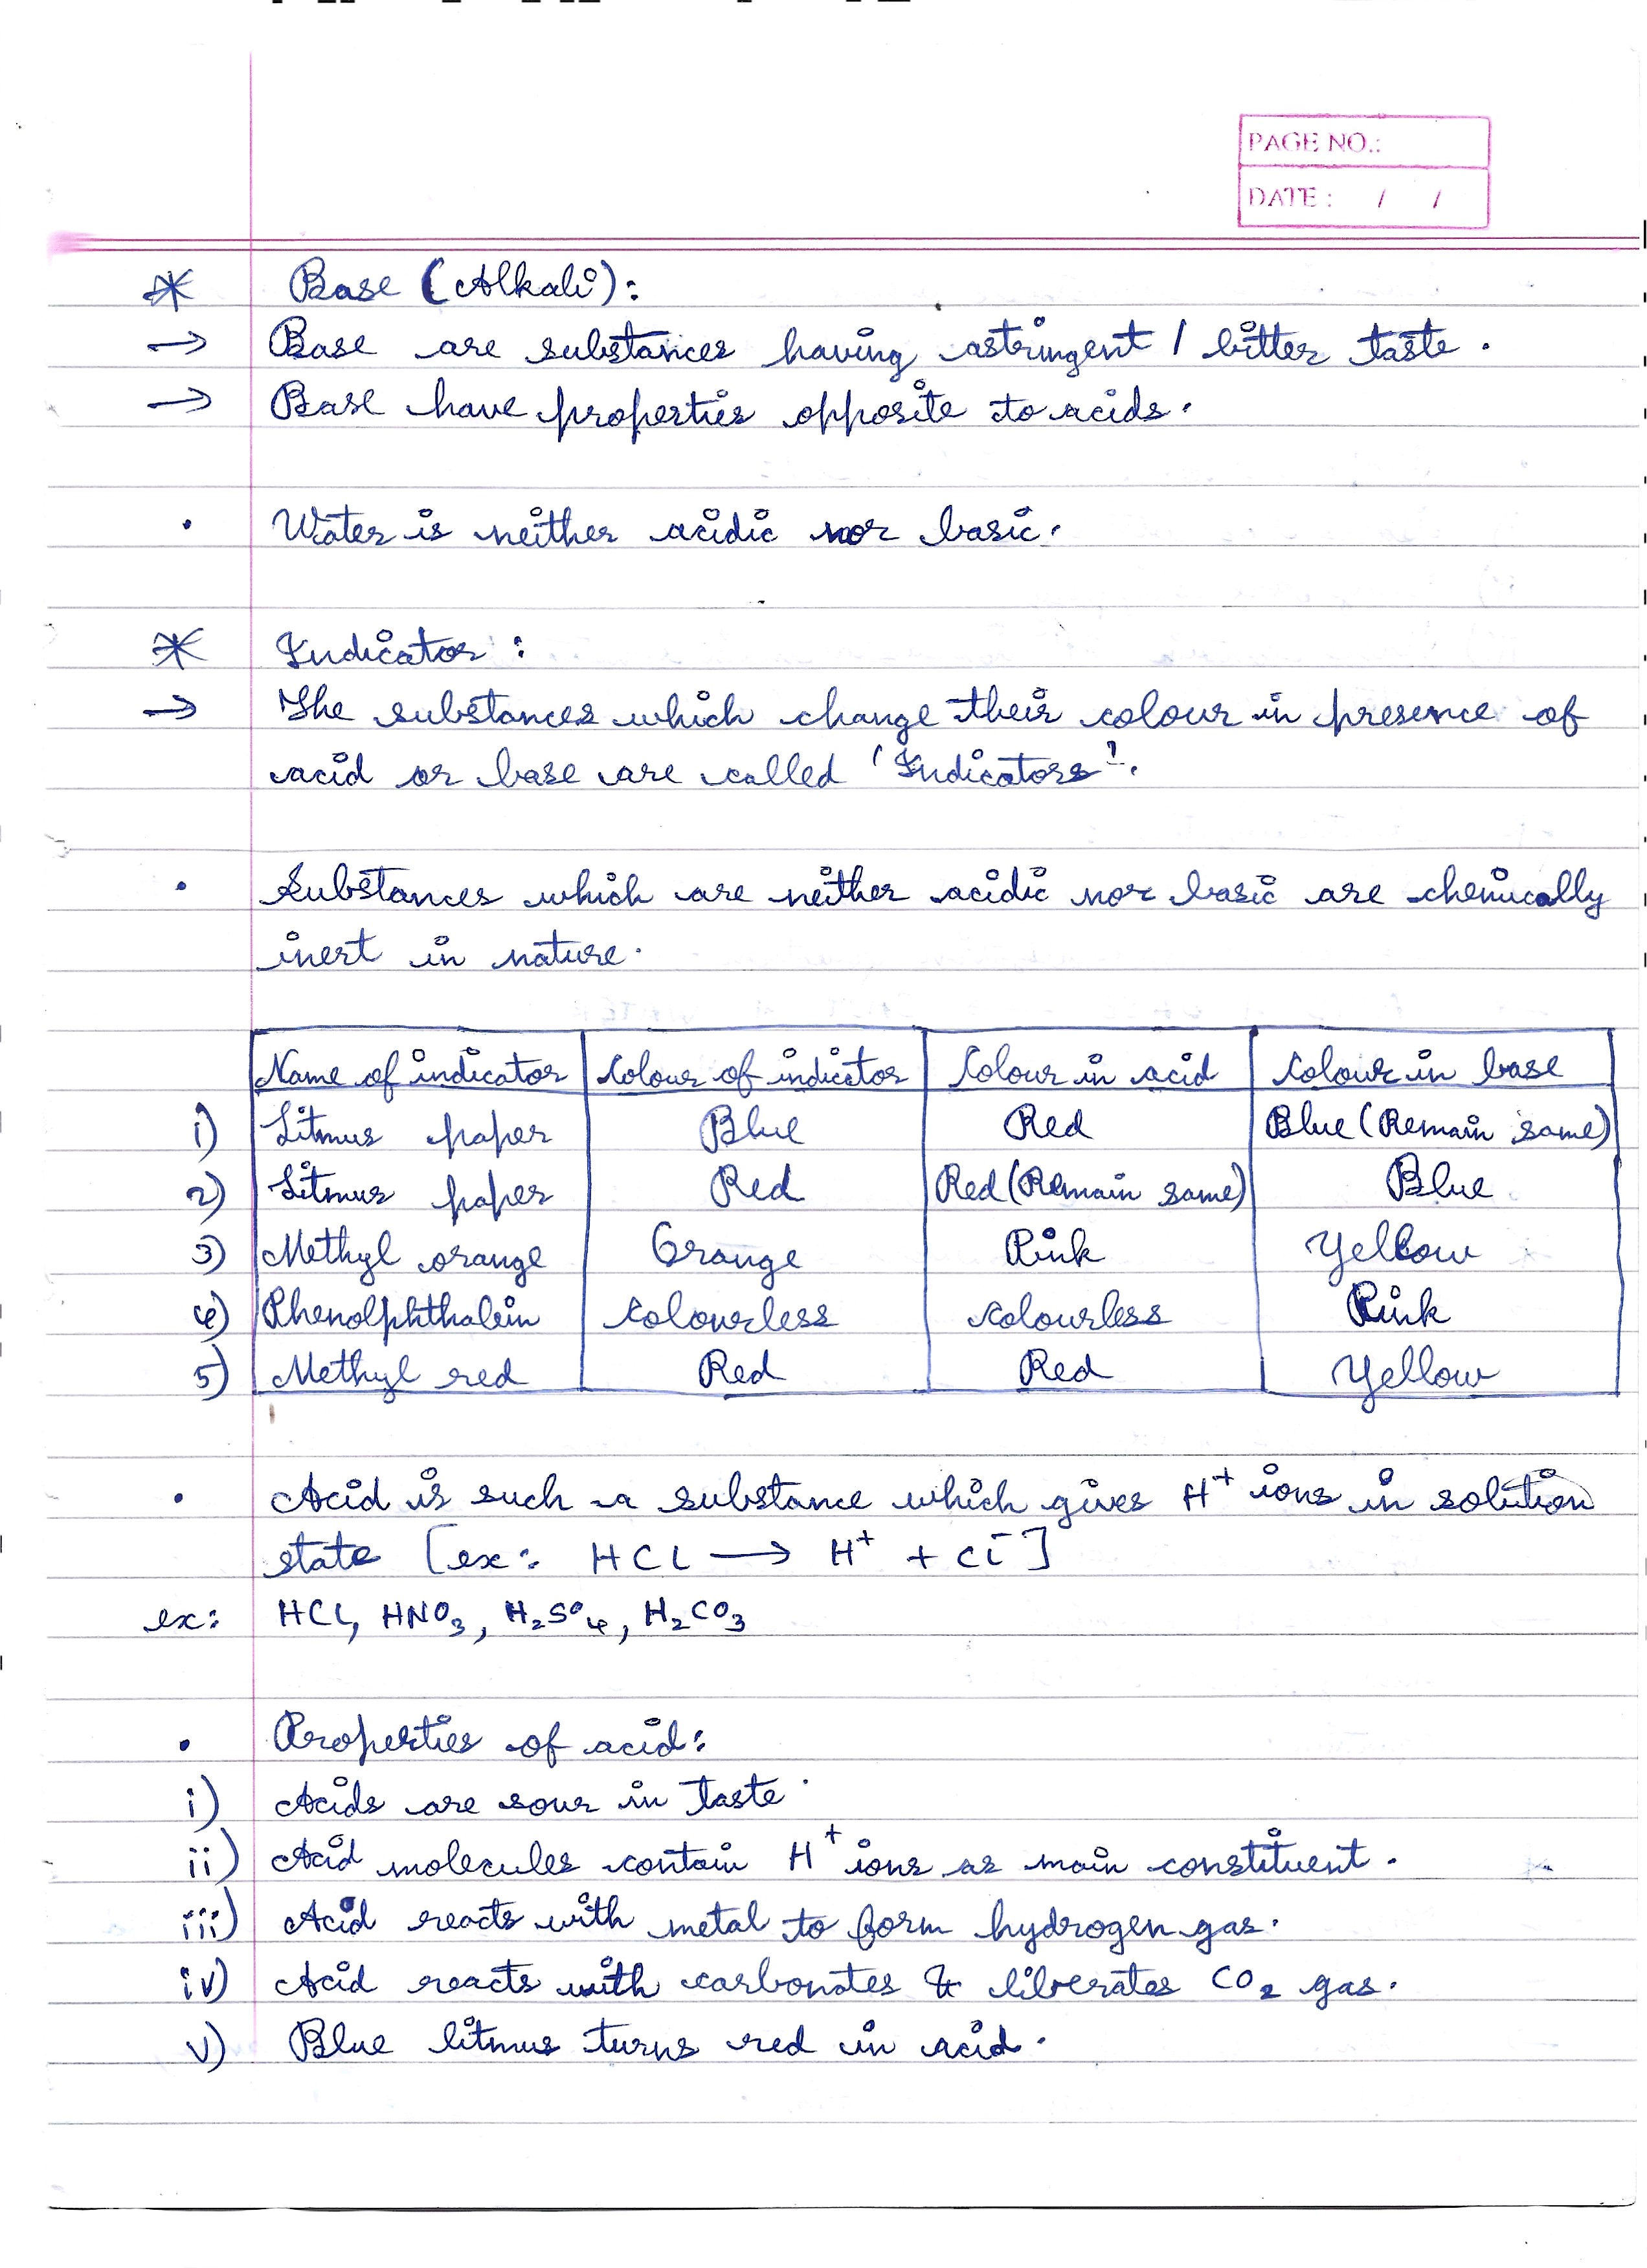 PAGE NO.:
DATE : / /
* Base (Alkali):
→ Base are substances having astringent / bitter taste.
→ Base have properties opposite to acids.
• Water is neither acidic nor basic.
* Indicator :
→ The substances which change their colour in presence of
acid or base are called 'Indicators'.
• Substances which are neither acidic nor basic are chemically
inert in nature.
Name of indicator | Colour of indictor | Colour in acid | Colour in base
1) Litmus paper | Blue | Red | Blue (Remain same)
2) Litmus paper | Red | Red (Remain same) | Blue
3) Methyl orange | Orange | Pink | Yellow
4) Phenolphthalein | Colourless | Colourless | Pink
5) Methyl red | Red | Red | Yellow
• Acid is such a substance which gives H⁺ ions in solution
state [ex: HCl → H⁺ + Cl⁻]
ex: HCl, HNO₃, H₂SO₄, H₂CO₃
• Properties of acid:
i) Acids are sour in taste.
ii) Acid molecules contain H⁺ ions as main constituent.
iii) Acid reacts with metal to form hydrogen gas.
iv) Acid reacts with carbonates & liberates CO₂ gas.
v) Blue litmus turns red in acid.